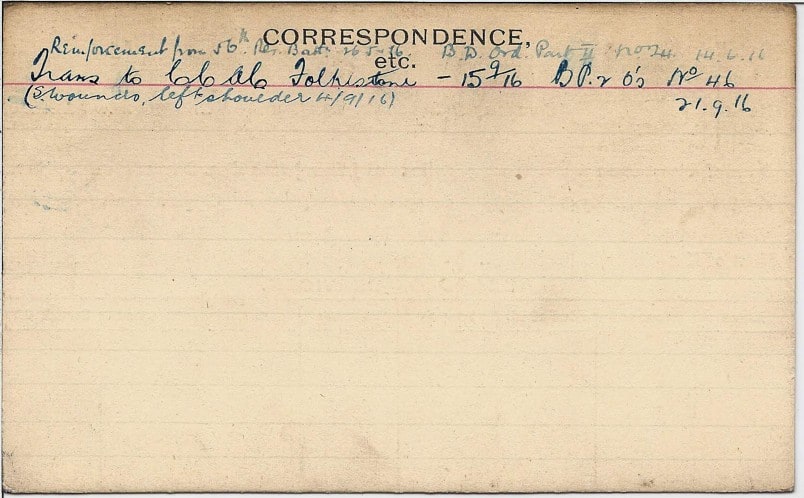 CORRESPONDENCE,
etc.
Reinforcement from 56th Res. Batt. 26-5-16. B.D. Ord. Part II No 24. 14.6.16
Trans to C.C.A.C. Folkestone - 15/9/16 B.P. 2 O's No 46
(S. wounds, left shoulder 4/9/16) 21.9.16